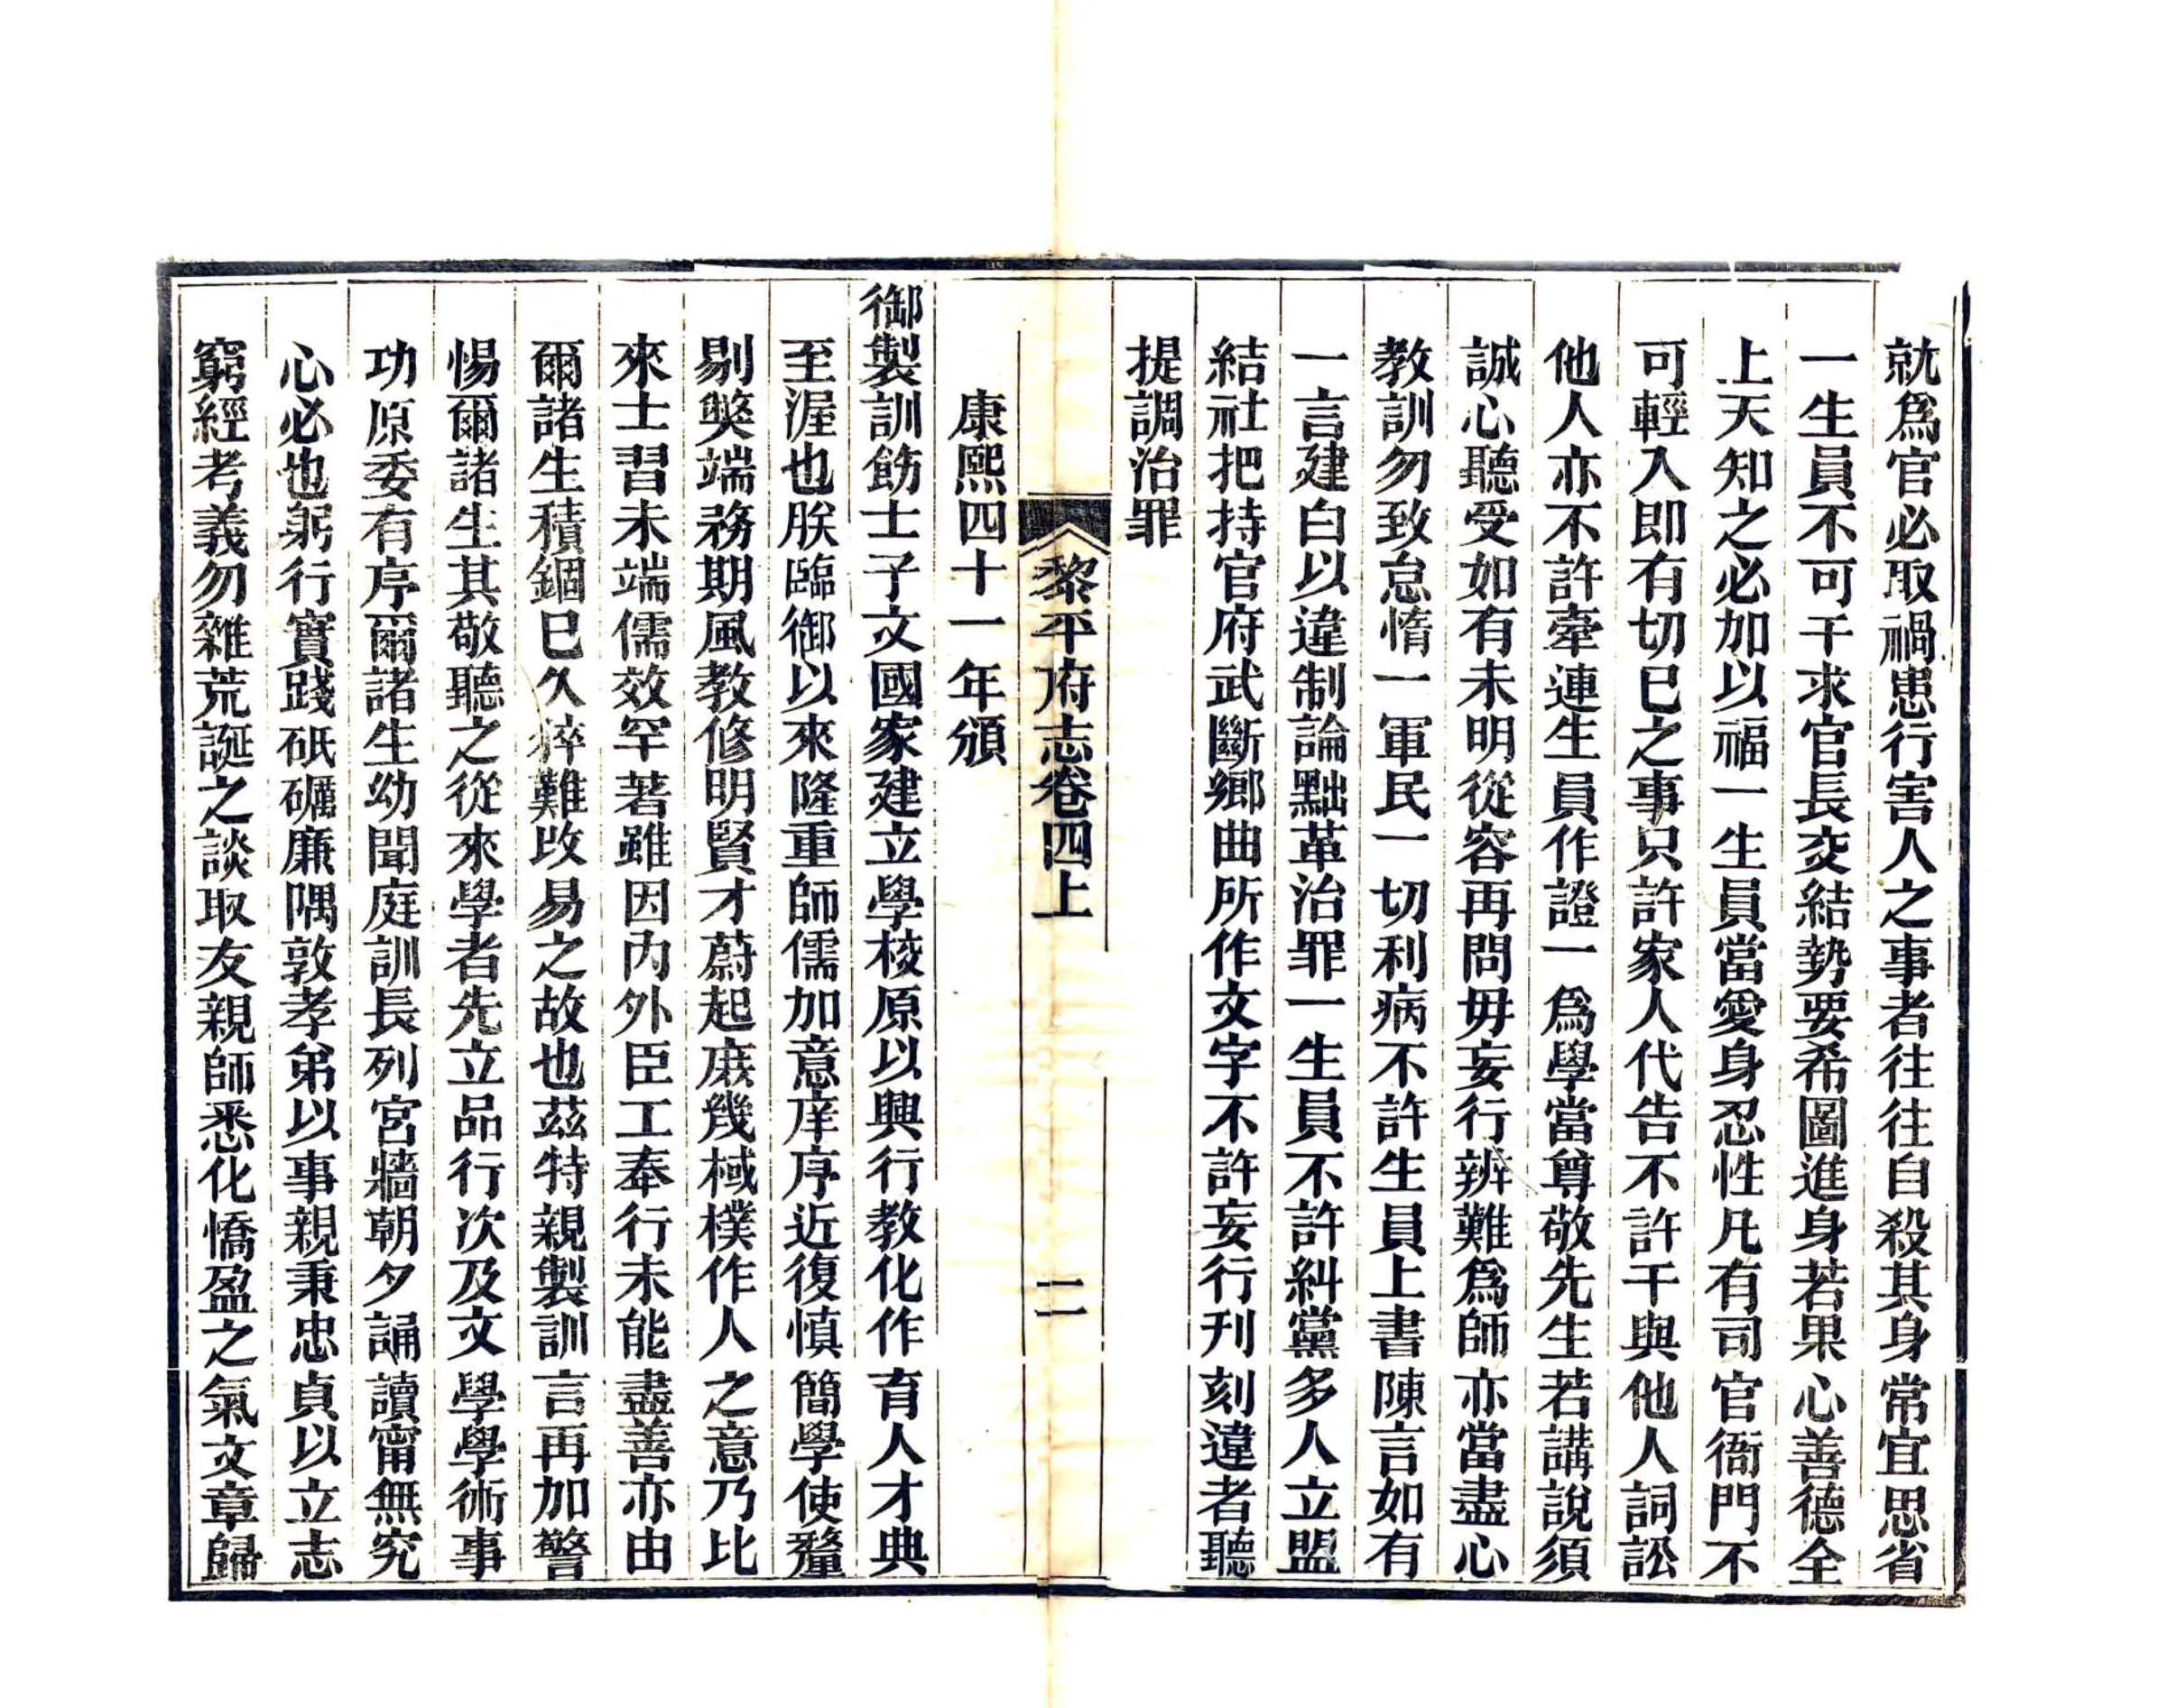 就爲官必取禍患行害人之事者往往自殺其身常宜思省
一生員不可干求官長交結勢要希圖進身若果心善德全
上天知之必加以福一生員當愛身忍性凡有司官衙門不
可輕入即有切已之事只許家人代告不許干與他人詞訟
他人亦不許牽連生員作證一爲學當尊敬先生若講說須
誠心聽受如有未明從容再問毋妄行辨難爲師亦當盡心
教訓勿致怠惰一軍民一切利病不許生員上書陳言如有
一言建白以違制論黜革治罪一生員不許糾黨多人立盟
結社把持官府武斷鄉曲所作文字不許妄行刊刻違者聽
提調治罪
黎平府志卷四上
二
康熙四十一年頒
御製訓飭士子文國家建立學校原以興行教化作育人才典
至渥也朕臨御以來隆重師儒加意庠序近復慎簡學使釐
剔獘端務期風教修明賢才蔚起庶幾棫樸作人之意乃比
來士習未端儒效罕著雖因內外臣工奉行未能盡善亦由
爾諸生積錮已久猝難攺易之故也茲特親製訓言再加警
惕爾諸生其敬聽之從來學者先立品行次及文學學術事
功原委有序爾諸生幼聞庭訓長列宮牆朝夕誦讀甯無究
心必也躬行實踐砥礪廉隅敦孝弟以事親秉忠貞以立志
窮經考義勿雜荒誕之談取友親師悉化憍盈之氣文章歸